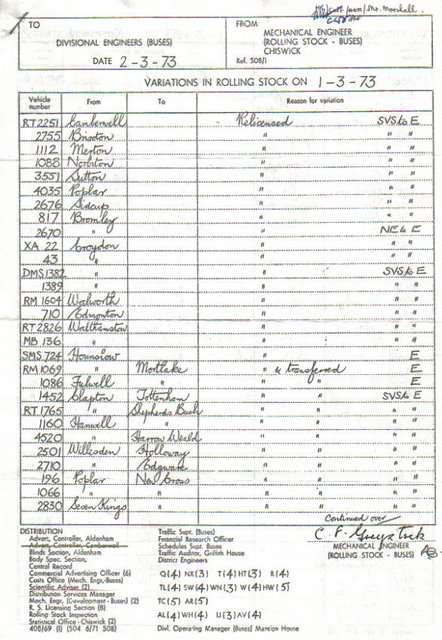 TO
DIVISIONAL ENGINEERS (BUSES)
DATE 2-3-73
FROM
MECHANICAL ENGINEER
(ROLLING STOCK - BUSES)
CHISWICK
Ref. 508/1
VARIATIONS IN ROLLING STOCK ON 1-3-73
Vehicle number From To Reason for variation
RT2251 Camberwell Relicensed SVS to E
2755 Brixton " " "
1112 Merton " " "
1088 Norbiton " " "
3551 Sutton " " "
4035 Poplar " " "
2676 Sidcup " " "
817 Bromley " " "
2670 " " NE to E
XA 22 Croydon " " "
43 " " " "
DMS1382 " " SVS to E
1389 " " " "
RM 1604 Walworth " " "
710 Edmonton " " "
RT 2826 Walthamstow " " "
MB 136 " " " "
SMS 724 Hounslow " E
RM 1069 " Mortlake " & transferred E
1086 Fulwell " " " E
1452 Clapton Tottenham " " SVS to E
RT 1765 " Shepherds Bush " " " "
1160 Hanwell " " " " "
4520 " Harrow Weald " " " "
2501 Willesden Holloway " " " "
2710 " Edgware " " " "
196 Poplar New Cross " " " "
1066 " " " " " "
2830 Seven Kings " " " " "
Continued over
MECHANICAL ENGINEER
(ROLLING STOCK - BUSES)
DISTRIBUTION
Advert. Controller, Aldenham
Advert. Controller, Camberwell
Blinds Section, Aldenham
Body Spec. Section,
Central Record
Commercial Advertising Officer (6)
Costs Office (Mech. Engr.-Buses)
Scientific Adviser (2)
Distribution Services Manager
Mech. Engr. (Development - Buses) (2)
R. S. Licensing Section (8)
Rolling Stock Inspection
Statistical Office - Chiswick (2)
408/69 (1) (504 6/71 508)
Traffic Supt. (Buses)
Financial Research Officer
Schedules Supt. Buses
Traffic Auditor, Griffith House
District Engineers
Q(4) NX(3) T(4) HT(3) R(4)
TL(4) SW(4) WN(3) W(4) HW(5)
TC(5) AR(5)
AL(4) WH(4) U(3) AV(4)
Divl. Operating Manager (Buses) Mansion House